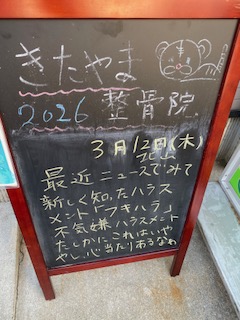 きたやま
2026 整骨院
3月12日(木)
北山
最近ニュースでみて
新しく知ったハラス
メント「フキハラ」
不気嫌ハラスメント
たしかにこれはいや
やし、心当たりあるなぁ